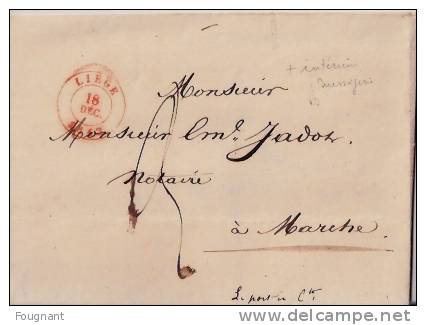 LIÈGE
18
DEC.
+ intérieur
Monsieur
Monsieur Em.le Jadot
Notaire
à Marche.
Le port en C.te
Fougnant
delcampe.net